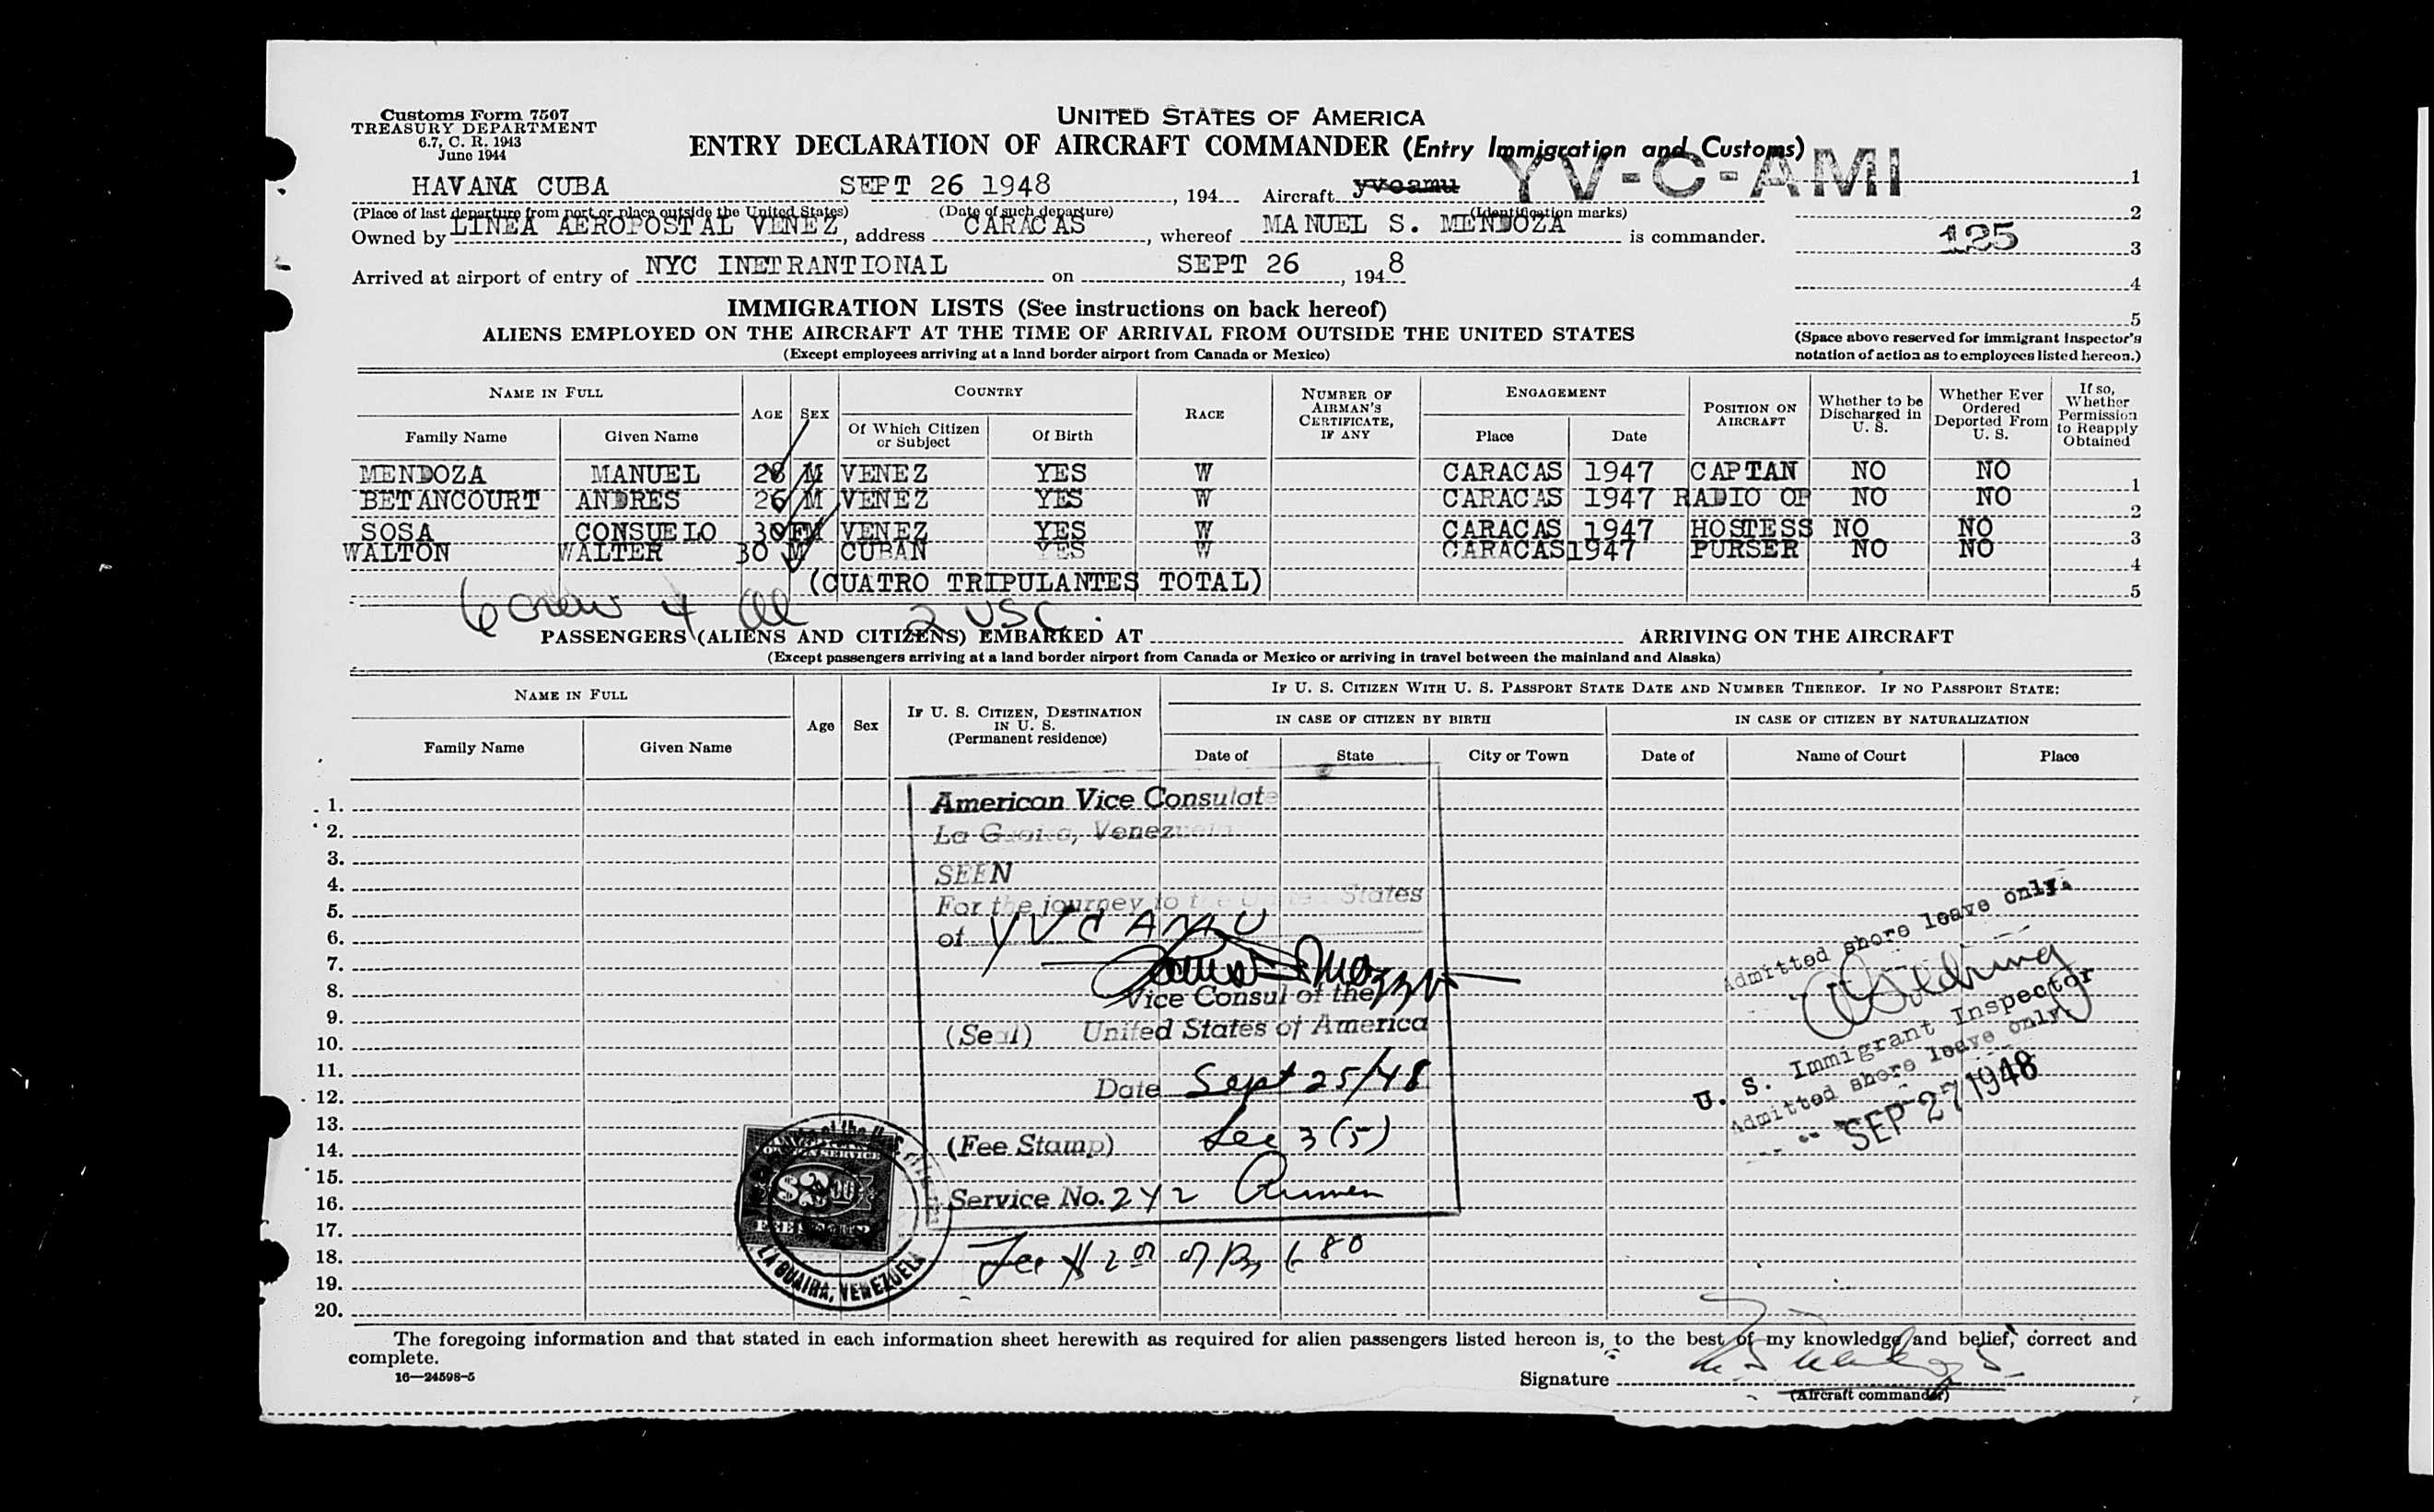 Customs Form 7507
TREASURY DEPARTMENT
6.7, C. R. 1943
June 1944
UNITED STATES OF AMERICA
ENTRY DECLARATION OF AIRCRAFT COMMANDER (Entry Immigration and Customs)
YV-C-AMI
HAVANA CUBA SEPT 26 1948 , 194 Aircraft yvcamu 1
(Place of last departure from port or place outside the United States) (Date of such departure) (Identification marks) 2
Owned by LINEA AEROPOSTAL VENEZ , address CARACAS , whereof MANUEL S. MENDOZA is commander.
125 3
Arrived at airport of entry of NYC INETRANTIONAL on SEPT 26 , 1948
4
5
IMMIGRATION LISTS (See instructions on back hereof)
ALIENS EMPLOYED ON THE AIRCRAFT AT THE TIME OF ARRIVAL FROM OUTSIDE THE UNITED STATES
(Except employees arriving at a land border airport from Canada or Mexico)
(Space above reserved for immigrant inspector's
notation of action as to employees listed hereon.)
NAME IN FULL AGE SEX COUNTRY RACE NUMBER OF AIRMAN'S CERTIFICATE, IF ANY ENGAGEMENT POSITION ON AIRCRAFT Whether to be Discharged in U. S. Whether Ever Ordered Deported From U. S. If so, Whether Permission to Reapply Obtained
Family Name Given Name Of Which Citizen or Subject Of Birth Place Date
MENDOZA MANUEL 28 M VENEZ YES W CARACAS 1947 CAPTAN NO NO 1
BETANCOURT ANDRES 26 M VENEZ YES W CARACAS 1947 RADIO OP NO NO 2
SOSA CONSUELO 30 FM VENEZ YES W CARACAS 1947 HOSTESS NO NO 3
WALTON WALTER 30 M CUBAN YES W CARACAS 1947 PURSER NO NO 4
(CUATRO TRIPULANTES TOTAL) 5
6 crew 4 2 USC.
PASSENGERS (ALIENS AND CITIZENS) EMBARKED AT ARRIVING ON THE AIRCRAFT
(Except passengers arriving at a land border airport from Canada or Mexico or arriving in travel between the mainland and Alaska)
NAME IN FULL Age Sex IF U. S. CITIZEN, DESTINATION IN U. S. (Permanent residence) IF U. S. CITIZEN WITH U. S. PASSPORT STATE DATE AND NUMBER THEREOF. IF NO PASSPORT STATE:
IN CASE OF CITIZEN BY BIRTH IN CASE OF CITIZEN BY NATURALIZATION
Family Name Given Name Date of State City or Town Date of Name of Court Place
1.
2.
3.
4.
5.
6.
7.
8.
9.
10.
11.
12.
13.
14.
15.
16.
17.
18.
19.
20.
American Vice Consulate
La Guaira, Venezuela
SEEN
For the journey to the United States
of YVC AMU
Vice Consul of the
(Seal) United States of America
Date Sept 25/48
(Fee Stamp) Sec 3 (5)
Service No. 242
Fee $2 00 or Bs 6 80
$2.00
LA GUAIRA, VENEZUELA
Admitted shore leave only.
U. S. Immigrant Inspector
Admitted shore leave only.
SEP 27 1948
The foregoing information and that stated in each information sheet herewith as required for alien passengers listed hereon is, to the best of my knowledge and belief, correct and
complete.
16—24598-5
Signature
(Aircraft commander)